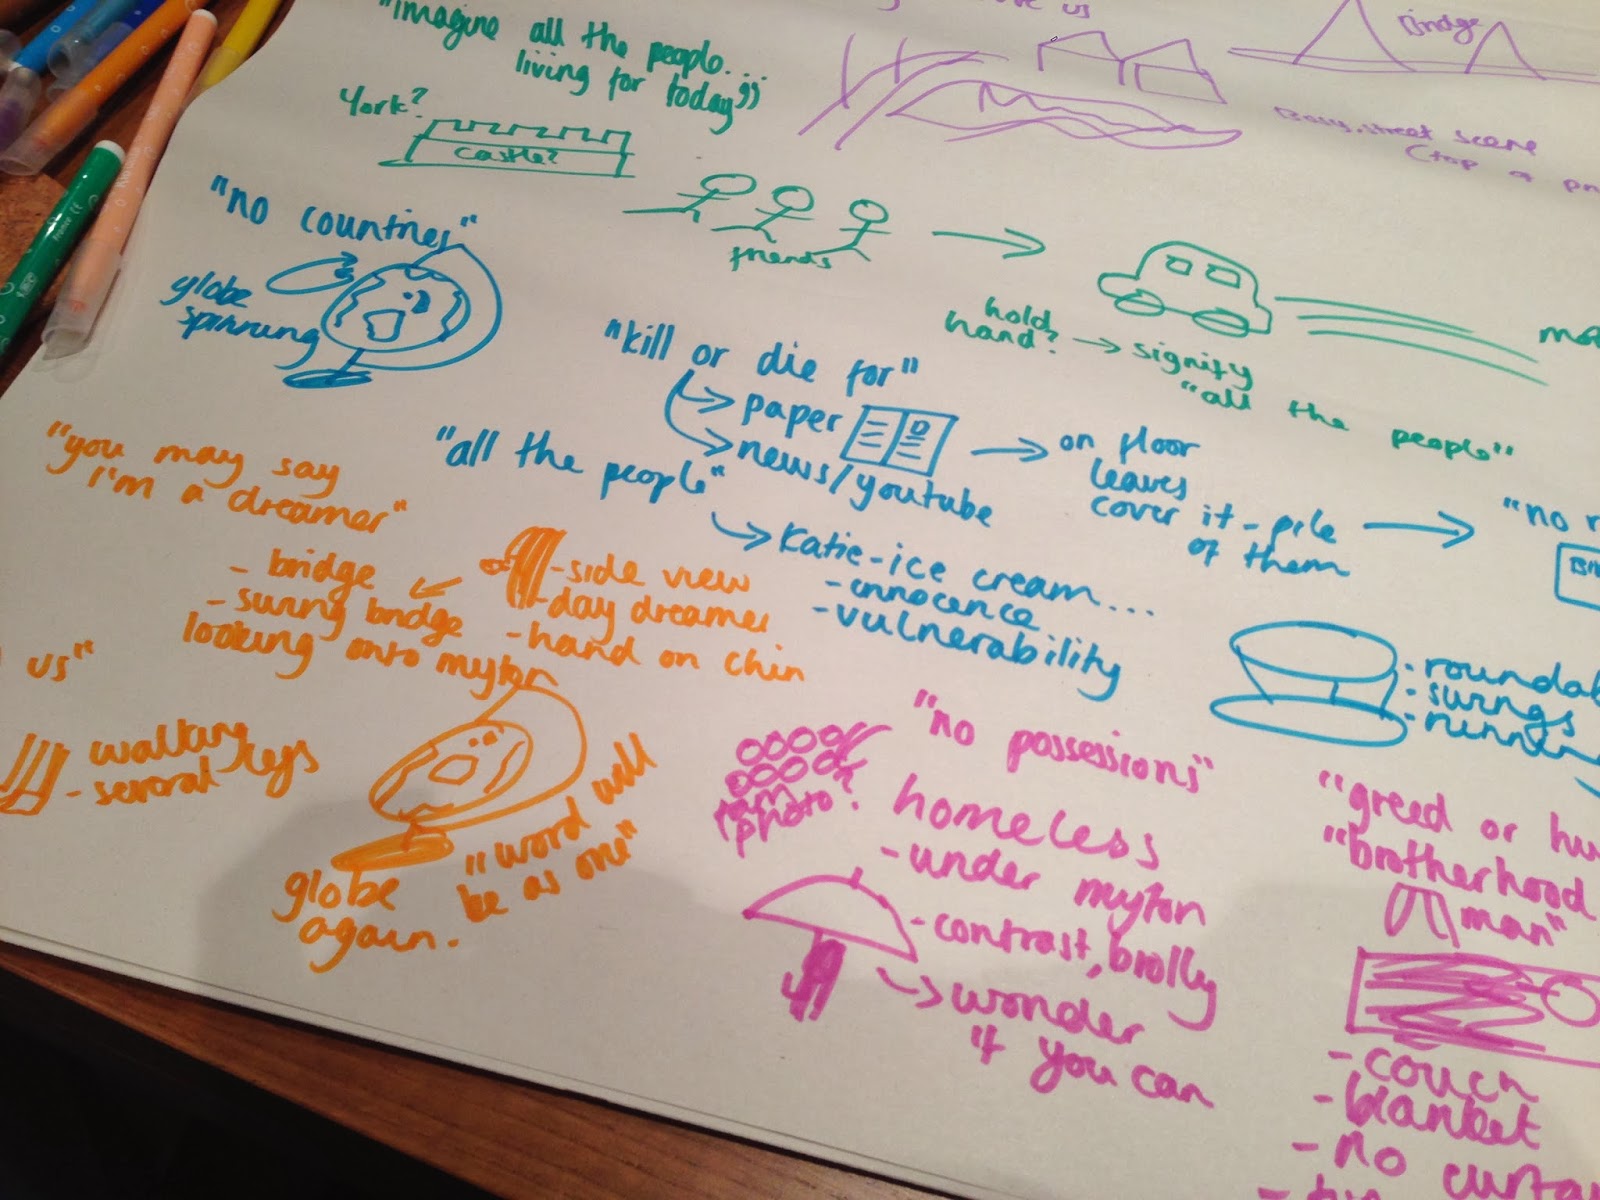 us
"imagine all the people...
living for today"
York?
castle?
friends
Bridge
Busy street scene
"no countries"
globe
spinning
hold
hand? → signify
"all the people"
"kill or die for"
paper
news/youtube
on floor
leaves
cover it - pile
of them
"no
"all the people"
Katie - ice cream...
- innocence
- vulnerability
"you may say
I'm a dreamer"
- bridge
- swing bridge
looking onto myton
- side view
- day dreamer
- hand on chin
us"
walking legs
- several
globe
again.
"word will
be as one"
- swings
"no possessions"
photo?
homeless
- under myton
- contrast, brolly
wonder
if you can
"greed or
"brotherhood
man"
- couch
- blanket
- no